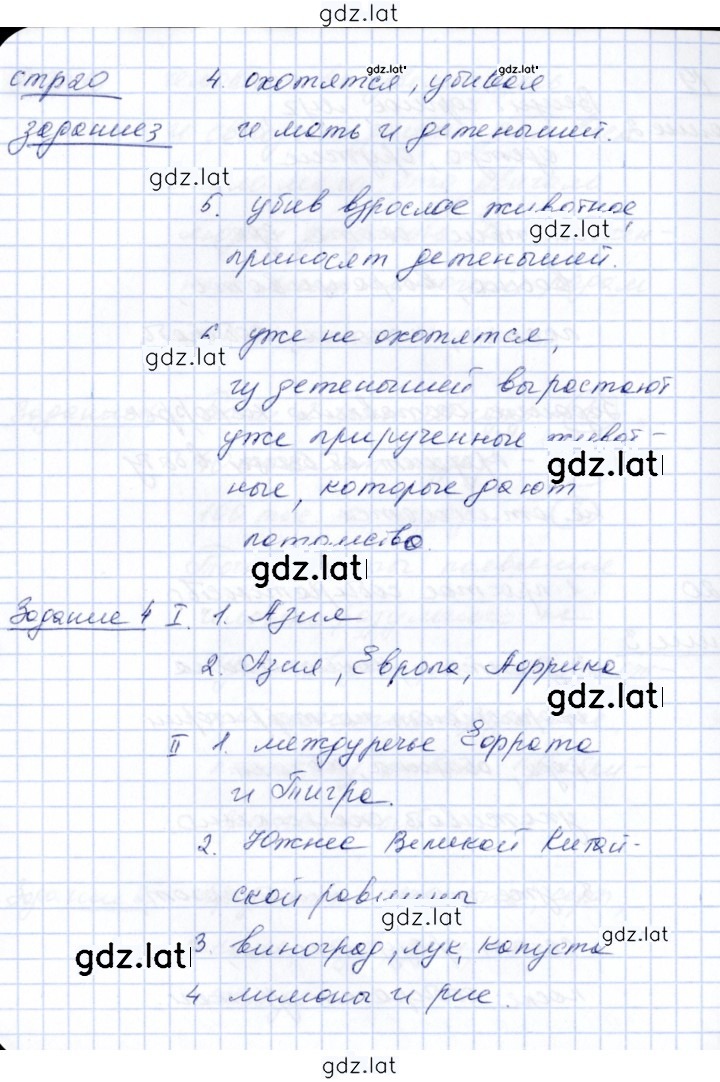 gdz.lat
стр20 4. охотятся, убивая
gdz.lat
задание3 и мать и детенышей.
gdz.lat
5. убив взрослое животное,
gdz.lat
приносят детенышей.
6 уже не охотятся,
gdz.lat
из детенышей вырастают
уже прирученные живот-
gdz.lat
ные, которые дают
потомство.
gdz.lat
Задание 4 I. 1. Азия
2. Азия, Европа, Африка
gdz.lat
II 1. междуречье Ефрата
и Тигра.
2. Южнее Великой Китай-
ской равнины
gdz.lat
3. виноград, лук, капуста
gdz.lat
gdz.lat
4 лимоны и рис.
gdz.lat